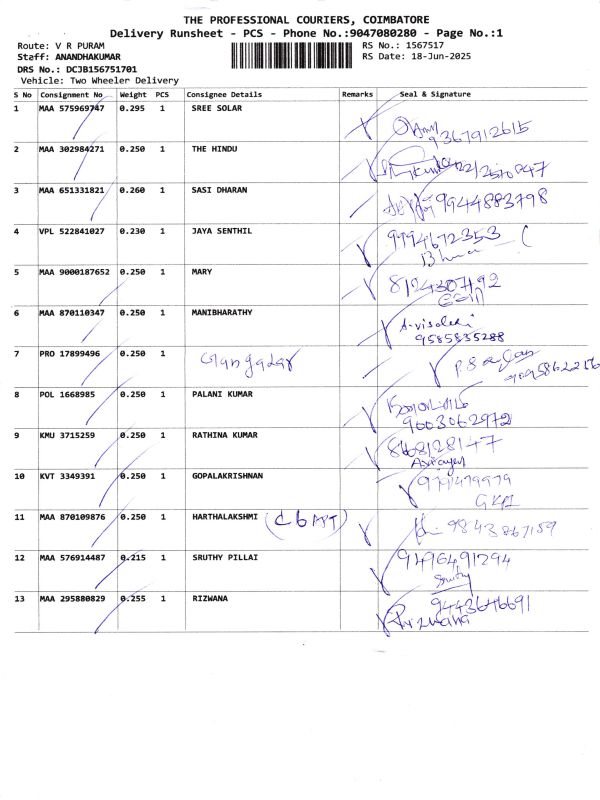 THE PROFESSIONAL COURIERS, COIMBATORE
Delivery Runsheet - PCS - Phone No.:9047080280 - Page No.:1
Route: V R PURAM RS No.: 1567517
Staff: ANANDHAKUMAR RS Date: 18-Jun-2025
DRS No.: DCJB156751701
Vehicle: Two Wheeler Delivery
S No Consignment No Weight PCS Consignee Details Remarks Seal & Signature
1 MAA 575969747 0.295 1 SREE SOLAR
9367912615
2 MAA 302984271 0.250 1 THE HINDU
3 MAA 651331821 0.260 1 SASI DHARAN
9944883798
4 VPL 522841027 0.230 1 JAYA SENTHIL
9994672353
5 MAA 9000187652 0.250 1 MARY
8124307192
6 MAA 870110347 0.250 1 MANIBHARATHY
9585835288
7 PRO 17899496 0.250 1
8 POL 1668985 0.250 1 PALANI KUMAR
9003062972
9 KMU 3715259 0.250 1 RATHINA KUMAR
8668128147
10 KVT 3349391 0.250 1 GOPALAKRISHNAN
9791479979
11 MAA 870109876 0.250 1 HARTHALAKSHMI
9843867159
12 MAA 576914487 0.215 1 SRUTHY PILLAI
9496491294
Sruthy
13 MAA 295880829 0.255 1 RIZWANA
9443646691
Rizwana